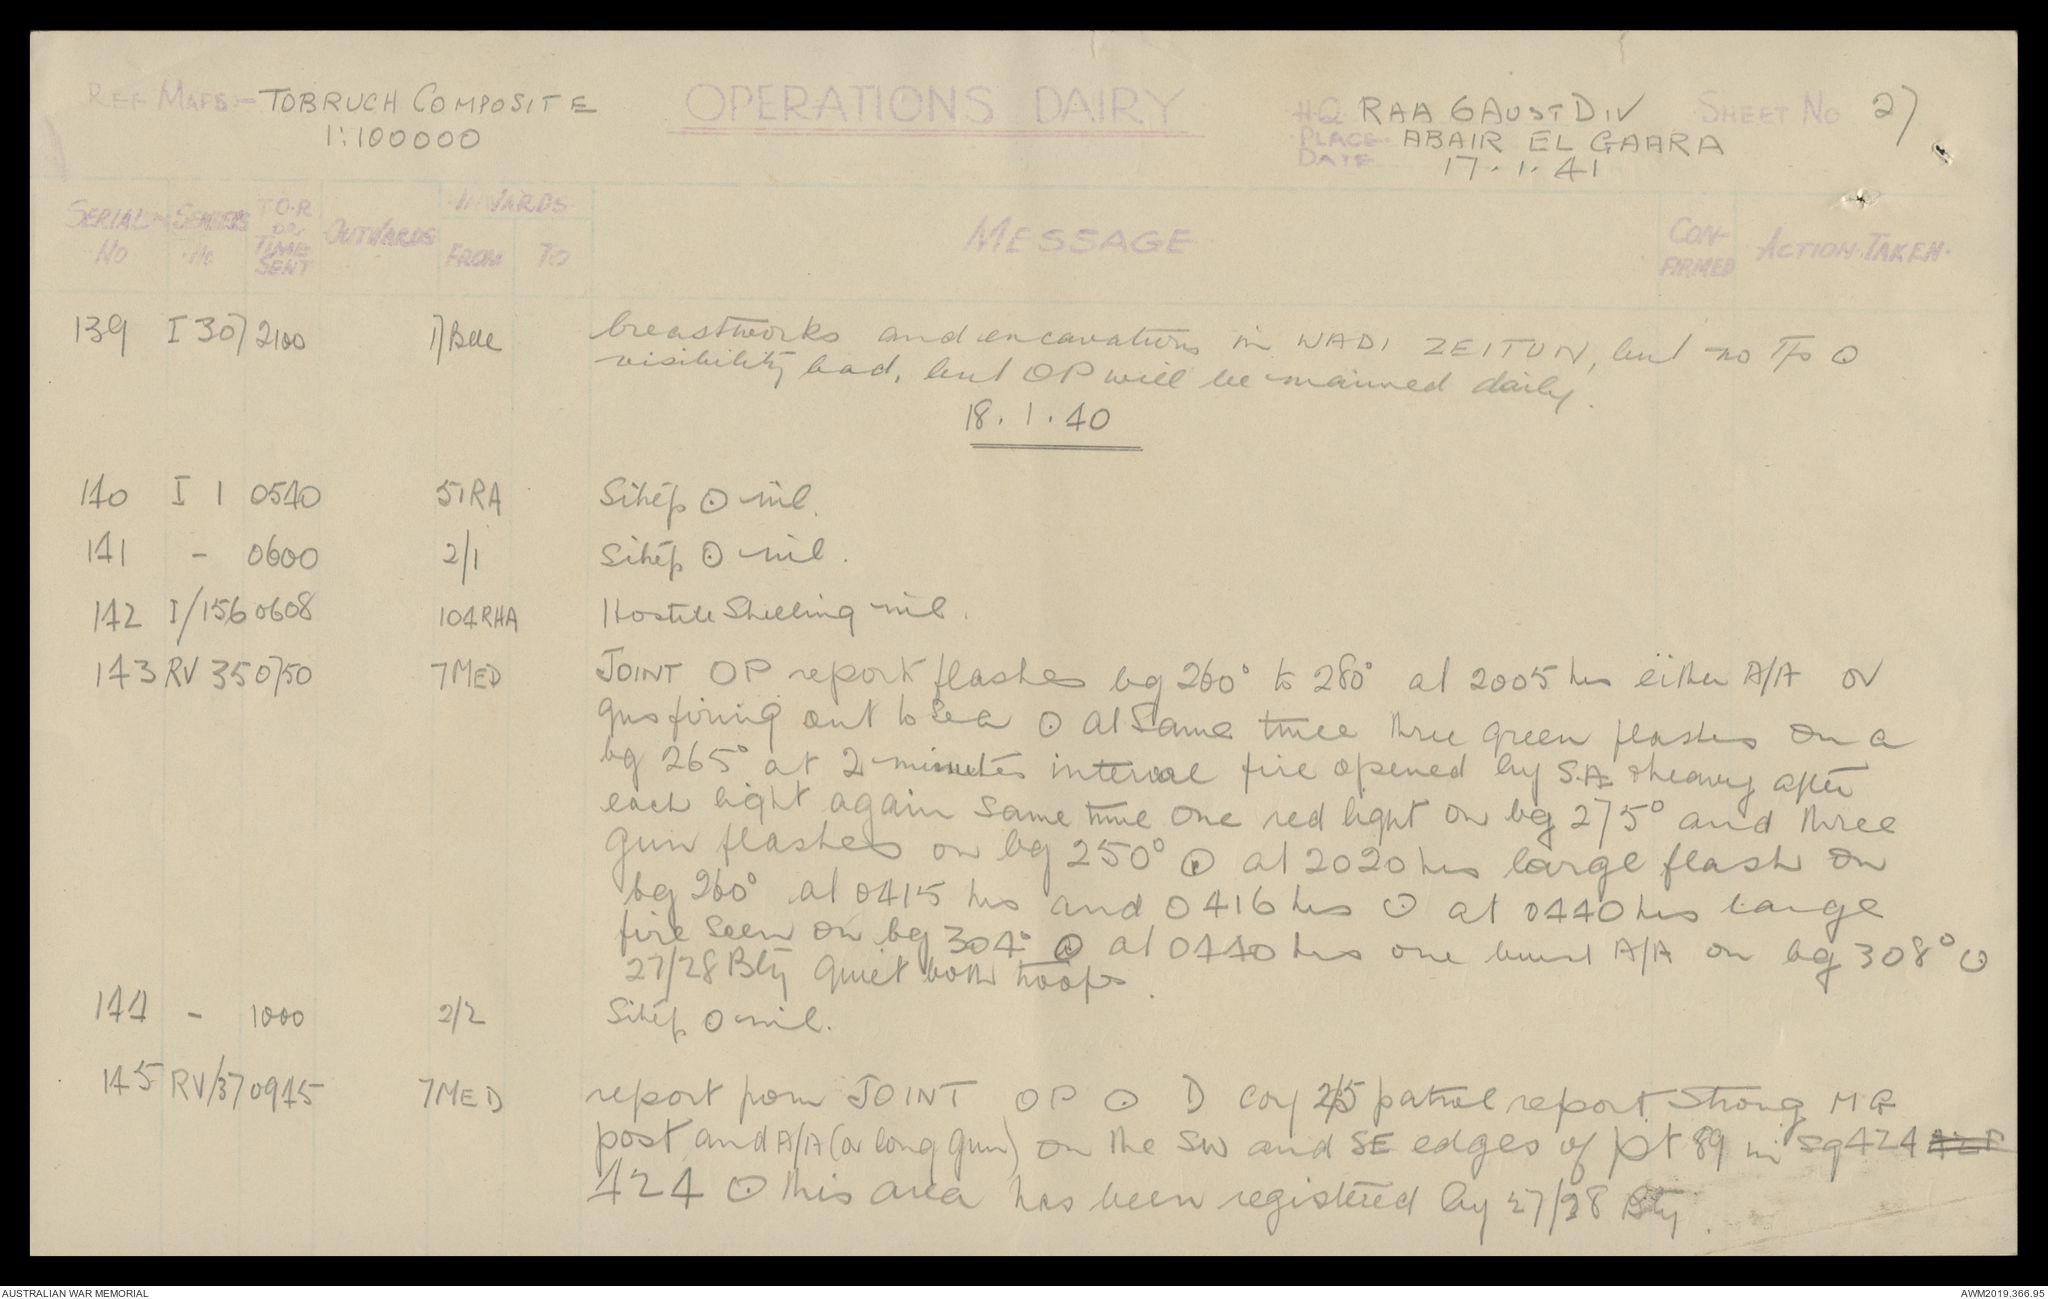 REF MAPS:- TOBRUCH COMPOSITE
1:100000
OPERATIONS DAIRY
HQ RAA 6 AUST DIV
PLACE. ABAIR EL GAARA
DATE 17.1.41
SHEET NO 27
SERIAL NO
SENDERS No
T.O.R OR TIME SENT
OUTWARDS
INWARDS
FROM TO
MESSAGE
CON-FIRMED
ACTION TAKEN.
139 I 307 2100 17 Bde breastworks and excavations in WADI ZEITUN, but no Tps ⊙
visibility bad, but OP will be manned daily.
18.1.40
140 I 1 0540 51RA Sitrep ⊙ nil.
141 - 0600 2/1 Sitrep ⊙ nil.
142 I/156 0608 104 RHA Hostile Shelling nil.
143 RV 35 0750 7 MED JOINT OP report flashes bg 260° to 280° at 2005 hrs either A/A or
gns firing out to Sea ⊙ at Same time three green flashes on a
bg 265° at 2 minutes interval fire opened by S.A. & heavy after
each light again Same time one red light on bg 275° and three
gun flashes on bg 250° ⊙ at 2020 hrs large flash on
bg 260° at 0415 hrs and 0416 hrs ⊙ at 0440 hrs large
fire seen on bg 304° ⊙ at 0440 hrs one burst A/A on bg 308° ⊙
27/28 Bty quiet both troops.
144 - 1000 2/2 Sitrep ⊙ nil.
145 RV/37 0945 7 MED report from JOINT OP ⊙ D Coy 2/5 patrol report Strong MG
post and A/A (or long gun) on the SW and SE edges of pt 89 in sq 424
424 ⊙ this area has been registered by 27/28 Bty.
AUSTRALIAN WAR MEMORIAL
AWM2019.366.95